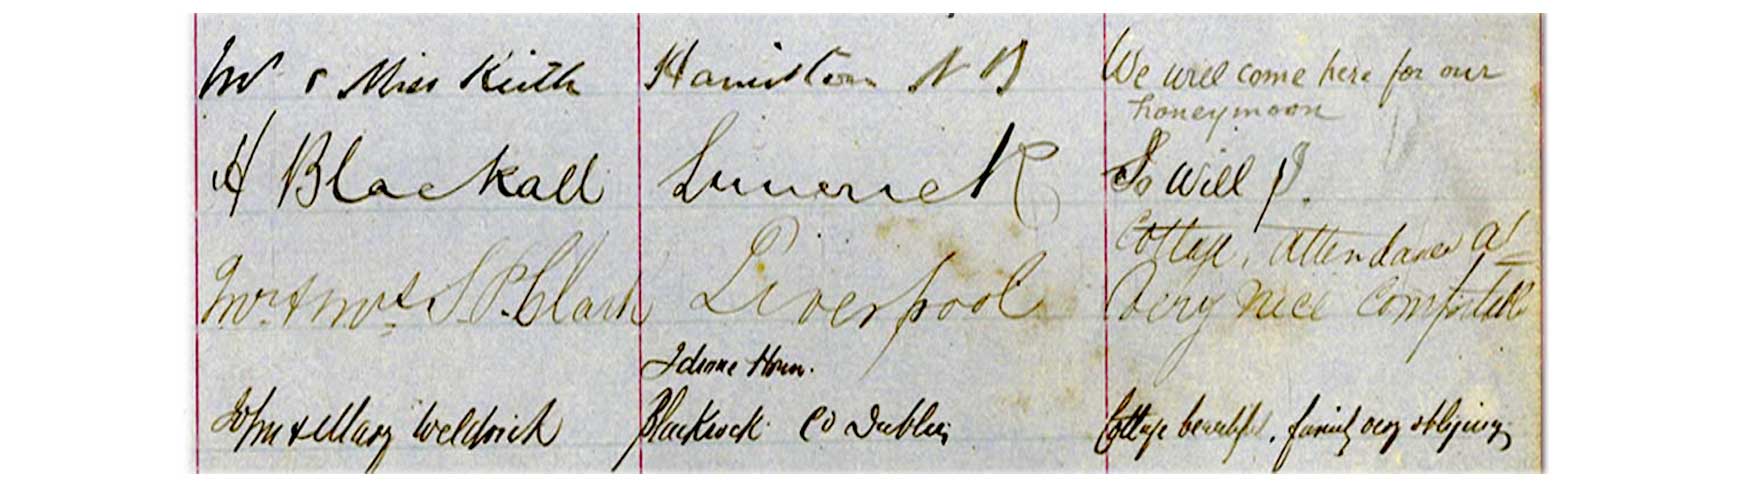 Mr & Miss Keith Hamilton N B We will come here for our
honeymoon
H Blackall Limerick So will I.
Cottage, attendance a1
Mr & Mrs S. P. Clark Liverpool Very nice Comfortable
Idrone House.
John & Mary Weldrick Blackrock Co Dublin Cottage beautiful, family very obliging